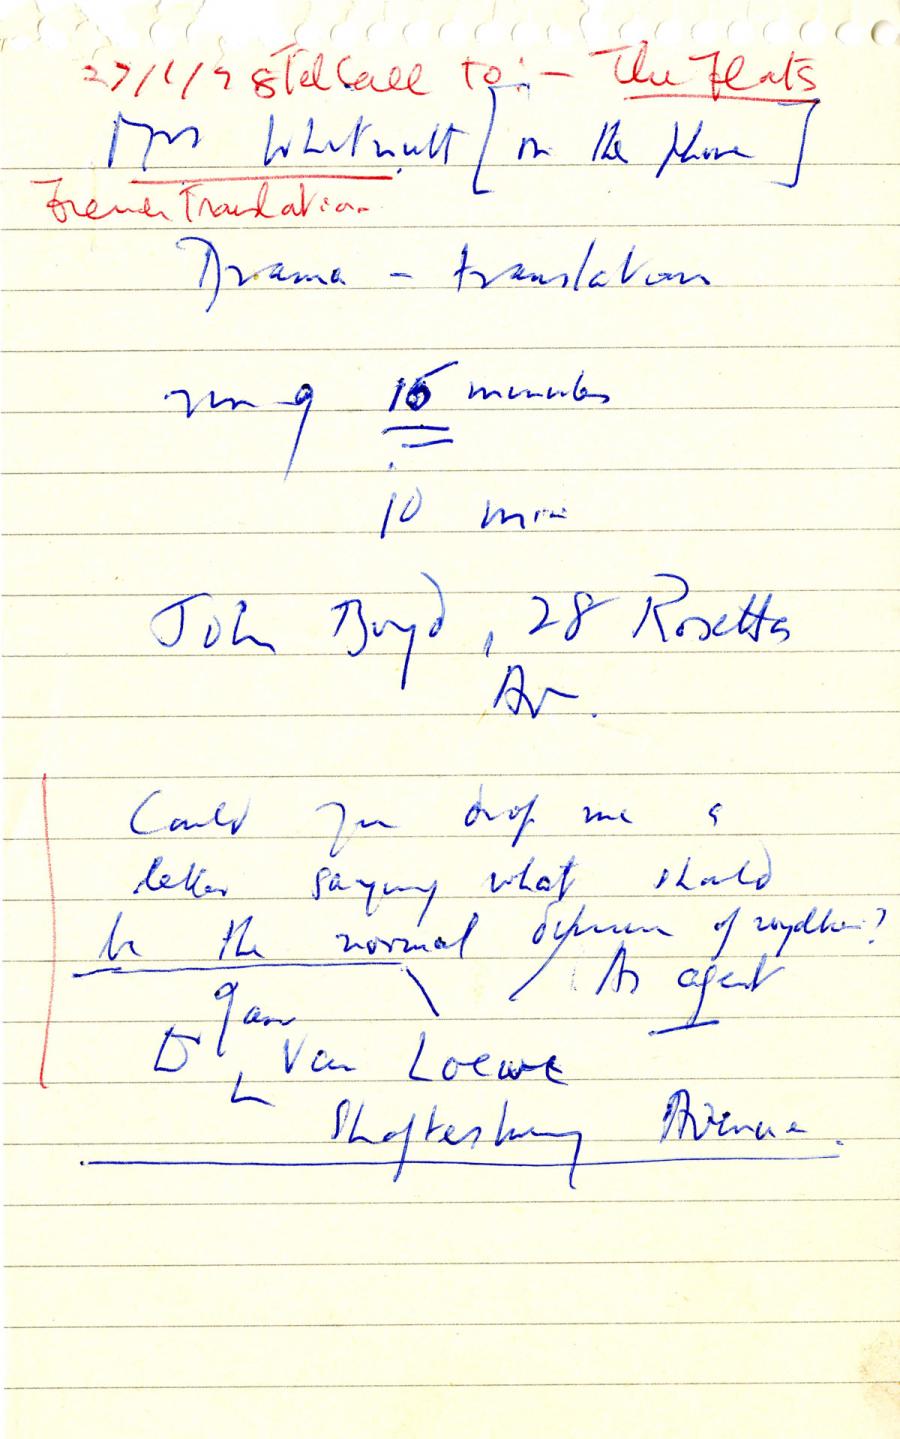 27/1/78 Tel Call to:- The Flats
Mrs [on the phone]
French Translation
Drama - translation
ring 15 minutes
10 min
John Boyd, 28 Rosetta
Av.
Could you drop me a
letter saying what should
be the normal division of royalties?
As agent
Jan
Dr Van Loewe
Shaftesbury Avenue.